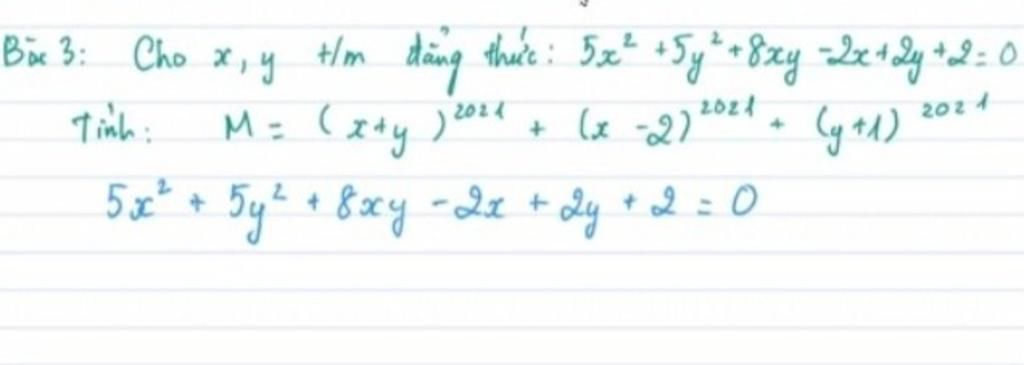 Bài 3: Cho x, y t/m đẳng thức: 5x² + 5y² + 8xy - 2x + 2y + 2 = 0
Tính: M = (x+y)²⁰²¹ + (x - 2)²⁰²¹ + (y+1)²⁰²¹
5x² + 5y² + 8xy - 2x + 2y + 2 = 0